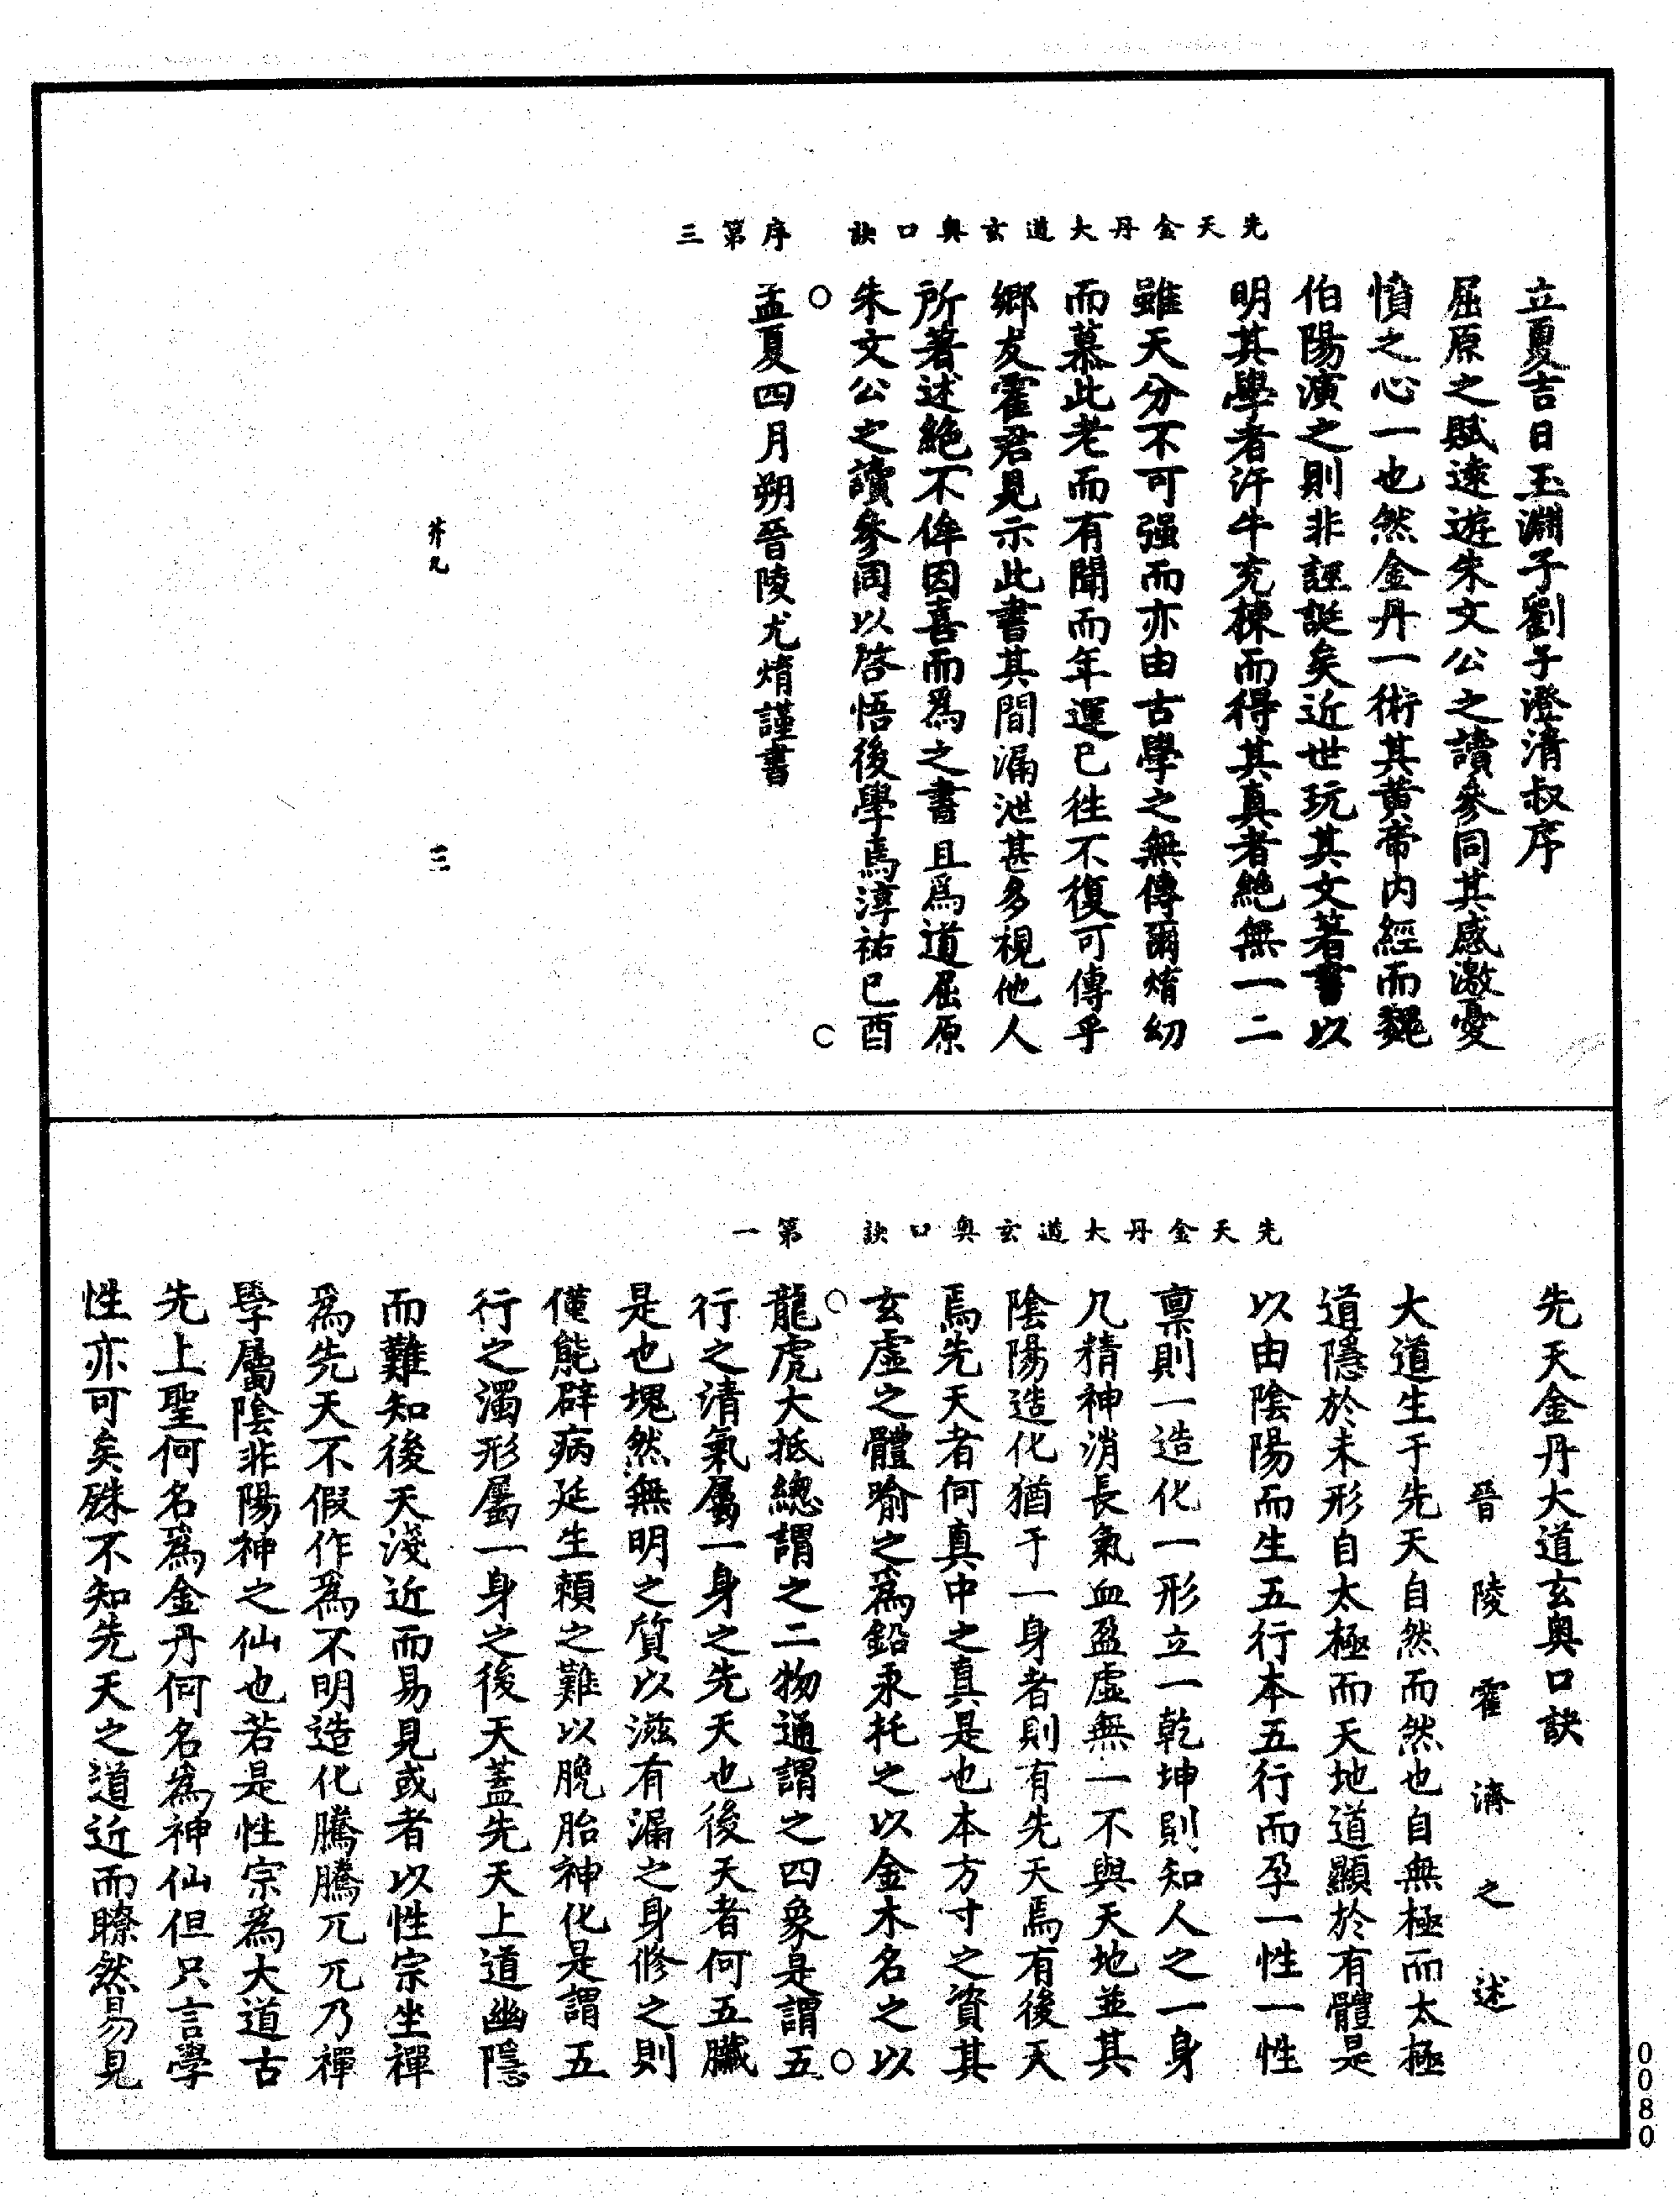 先天金丹大道玄奧口訣　序第三
立夏吉日玉淵子劉子澄清叔序
屈原之賦遠遊朱文公之讀參同其感激憂
憤之心一也然金丹一術其黃帝内經而魏
伯陽演之則非誣誕矣近世玩其文著書以
明其學者汗牛充棟而得其真者絶無一二
雖天分不可强而亦由古學之無傳爾焴幼
而慕此老而有聞而年運已徃不復可傳乎
鄉友霍君見示此書其間漏泄甚多視他人
所著述絶不侔因喜而爲之書且爲道屈原
朱文公之讀參同以啓悟後學焉淳祐已酉
孟夏四月朔晉陵尤焴謹書
芥九
三
先天金丹大道玄奧口訣　第一
先天金丹大道玄奧口訣
晉陵霍濟之述
大道生于先天自然而然也自無極而太極
道隱於未形自太極而天地道顯於有體是
以由陰陽而生五行本五行而孕一性一性
禀則一造化一形立一乾坤則知人之一身
凡精神消長氣血盈虛無一不與天地並其
陰陽造化猶于一身者則有先天焉有後天
焉先天者何真中之真是也本方寸之資其
玄虛之體喻之爲鉛汞托之以金木名之以
龍虎大抵總謂之二物通謂之四象是謂五
行之清氣屬一身之先天也後天者何五臟
是也塊然無明之質以滋有漏之身修之則
僅能辟病延生頼之難以脫胎神化是謂五
行之濁形屬一身之後天蓋先天上道幽隱
而難知後天淺近而易見或者以性宗坐禪
爲先天不假作爲不明造化騰騰兀兀乃禪
學屬陰非陽神之仙也若是性宗爲大道古
先上聖何名爲金丹何名爲神仙但只言學
性亦可矣殊不知先天之道近而瞭然易見
0080